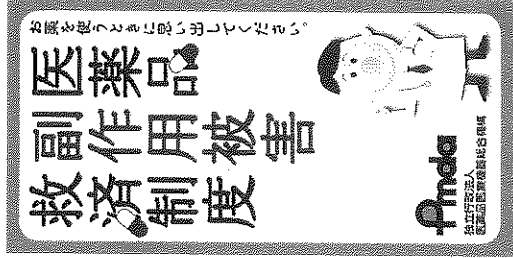 お薬を使うときに思い出してください。
医薬品
副作用被害
救済制度
Pmda
独立行政法人
医薬品医療機器総合機構